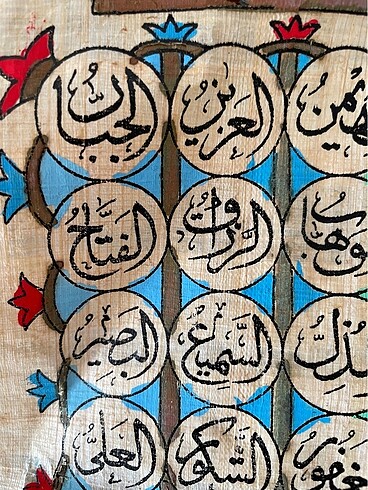 هيمن العزيز الجبَّار
وهاب الرزاق الفتَّاح
ذلُّ السَّميع البصير
غفور الشَّكور العليُّ